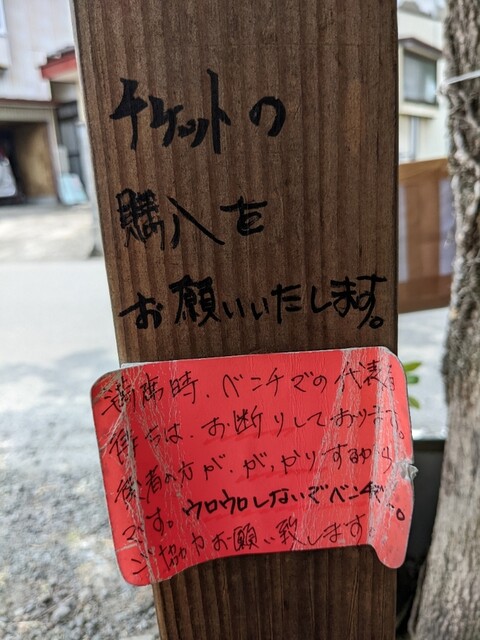 チケットの
購入を
お願いいたします。
満席時、ベンチでの代表
待ちは、お断りしております。
後者の方が、がっかりするから
です。ウロウロしないでベンチ へ。
ご協力お願い致します